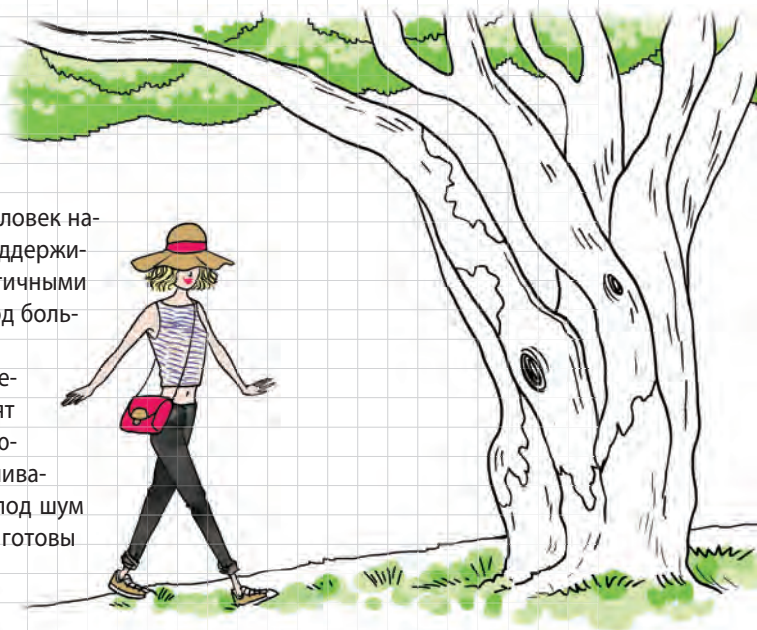 ловек на-
ддержи-
тичными
д боль-
е-
ят
ю-
лива-
под шум
готовы